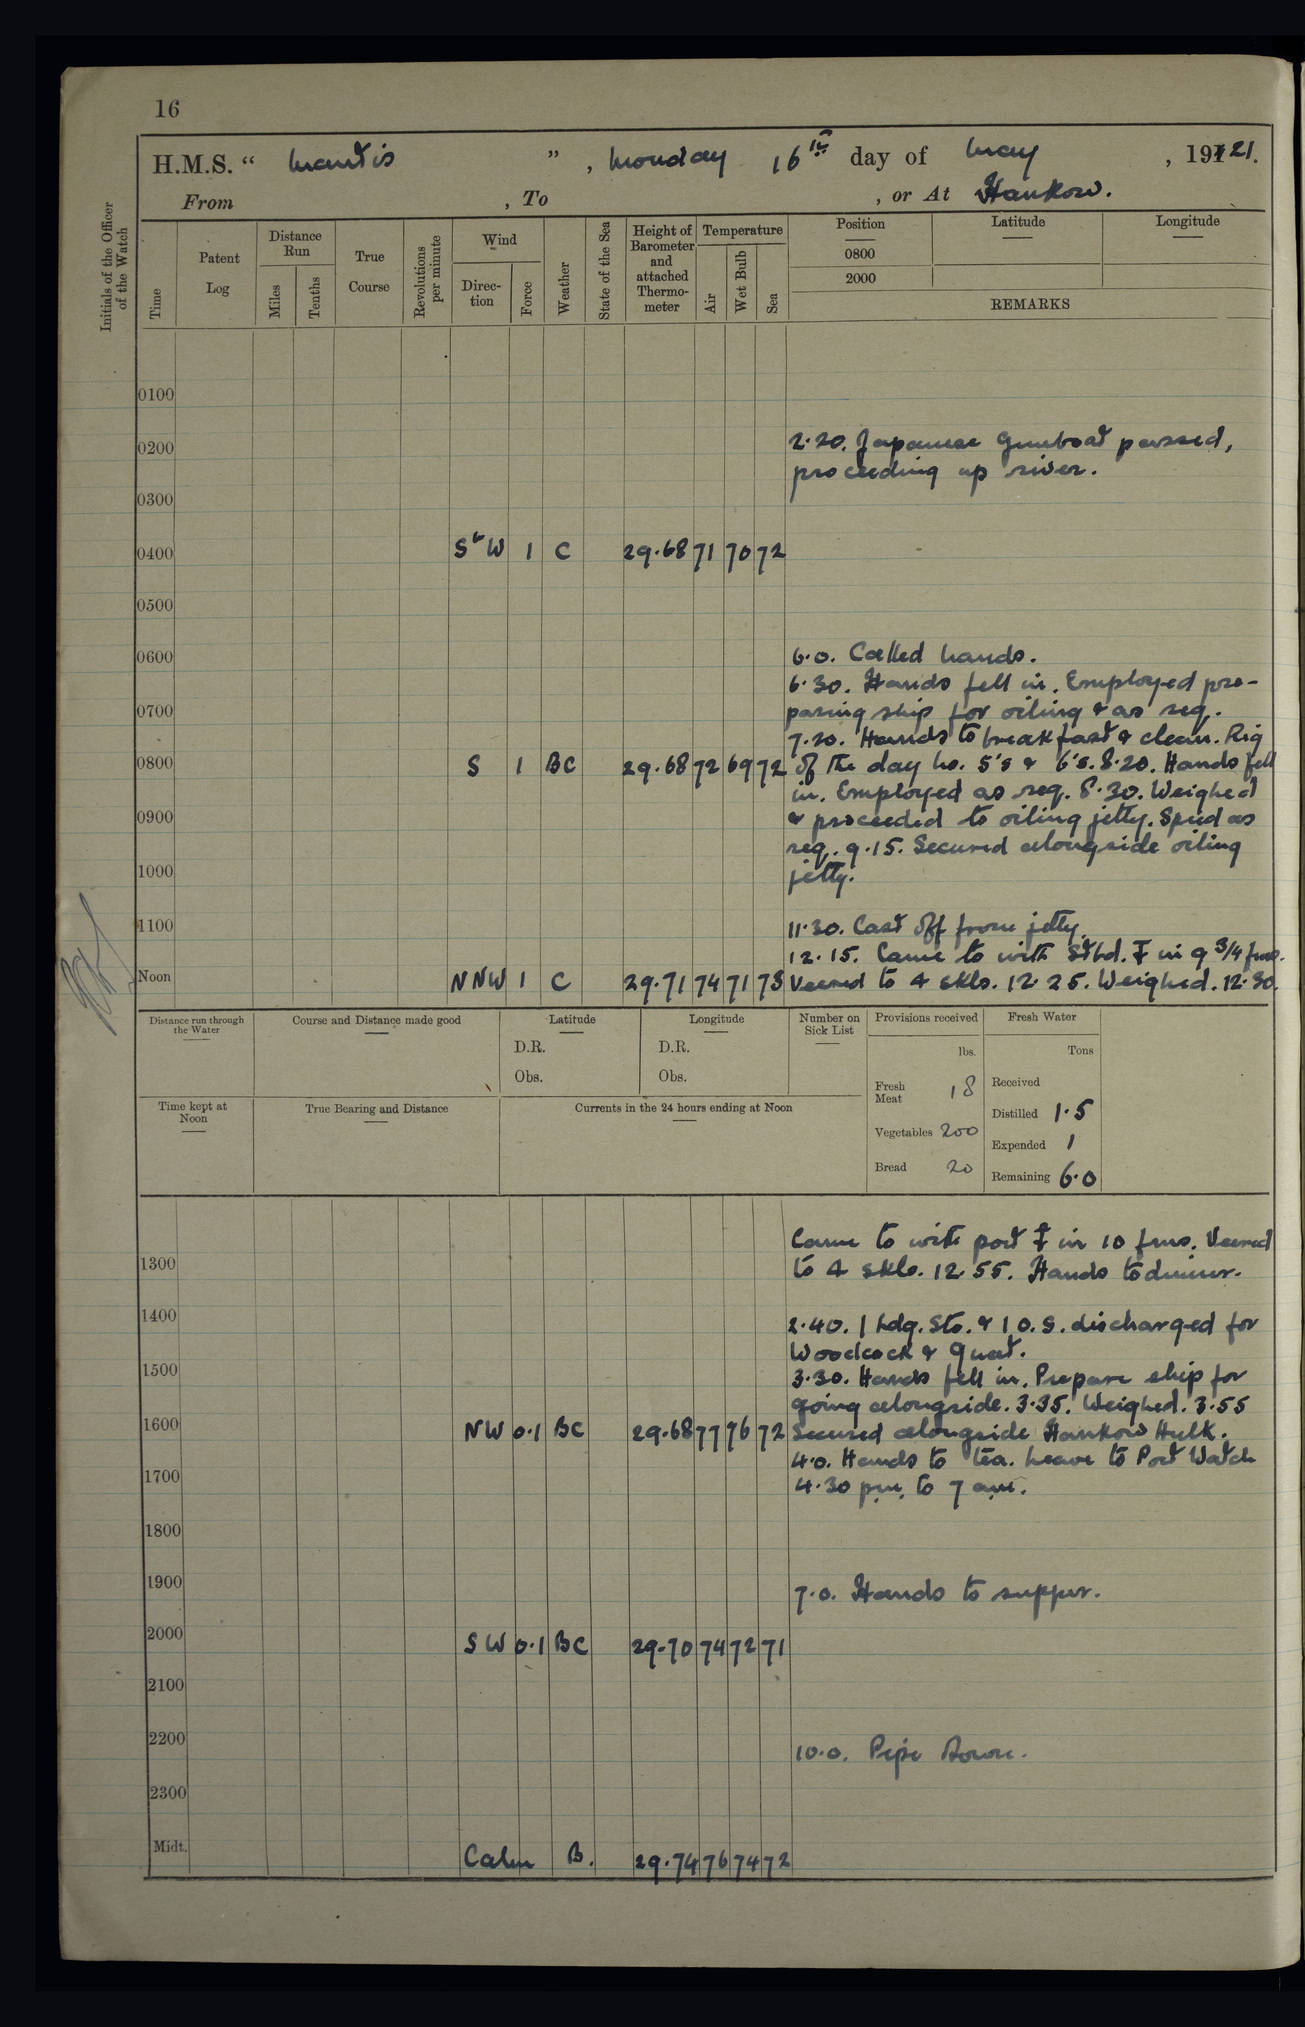 16
H.M.S. “ Mantis ”, Monday 16th day of May, 1921.
From , To , or At Hankow.
Initials of the Officer of the Watch
Time
Patent Log
Distance Run
Miles
Tenths
True Course
Revolutions per minute
Wind
Direction
Force
Weather
State of the Sea
Height of Barometer and attached Thermometer
Temperature
Air
Wet Bulb
Sea
Position
Latitude
Longitude
0800
2000
REMARKS
0100
0200
2.20. Japanese Gunboat passed,
proceeding up river.
0300
0400 SbW 1 C 29.68 71 70 72
0500
0600
6.0. Called hands.
6.30. Hands fell in. Employed pre-
0700
paring ship for oiling & as req.
7.20. Hands to breakfast & clean. Rig
0800 S 1 BC 29.68 72 69 72 of the day No. 5's & 6's. 8.20. Hands fell
in. Employed as req. 8.30. Weighed
0900
& proceeded to oiling jetty. Speed as
req. 9.15. Secured alongside oiling
1000
jetty.
1100
11.30. Cast off from jetty.
12.15. Came to with Stbd. ⚓ in 9 3/4 fms.
Noon NNW 1 C 29.71 74 71 73 Veered to 4 skls. 12.25. Weighed. 12.30.
Distance run through the Water
Course and Distance made good
Latitude
D.R.
Obs.
Longitude
D.R.
Obs.
Number on Sick List
Provisions received
lbs.
Fresh Meat 18
Vegetables 200
Bread 20
Fresh Water
Tons
Received
Distilled 1.5
Expended 1
Remaining 6.0
Time kept at Noon
True Bearing and Distance
Currents in the 24 hours ending at Noon
Came to with port ⚓ in 10 fms. Veered
1300
to 4 skls. 12.55. Hands to dinner.
1400
2.40. 1 Ldg. Sto. & 1 O.S. discharged for
Woodcock & Gnat.
1500
3.30. Hands fell in. Prepare ship for
going alongside. 3.35. Weighed. 3.55
1600 NW 0.1 BC 29.68 77 76 72 Secured alongside Hankow Hulk.
4.0. Hands to tea. Leave to Port Watch
1700
4.30 p.m. to 7 a.m.
1800
1900
7.0. Hands to supper.
2000 SW 0.1 BC 29.70 74 72 71
2100
2200
10.0. Pipe Down.
2300
Midt. Calm B. 29.74 76 74 72